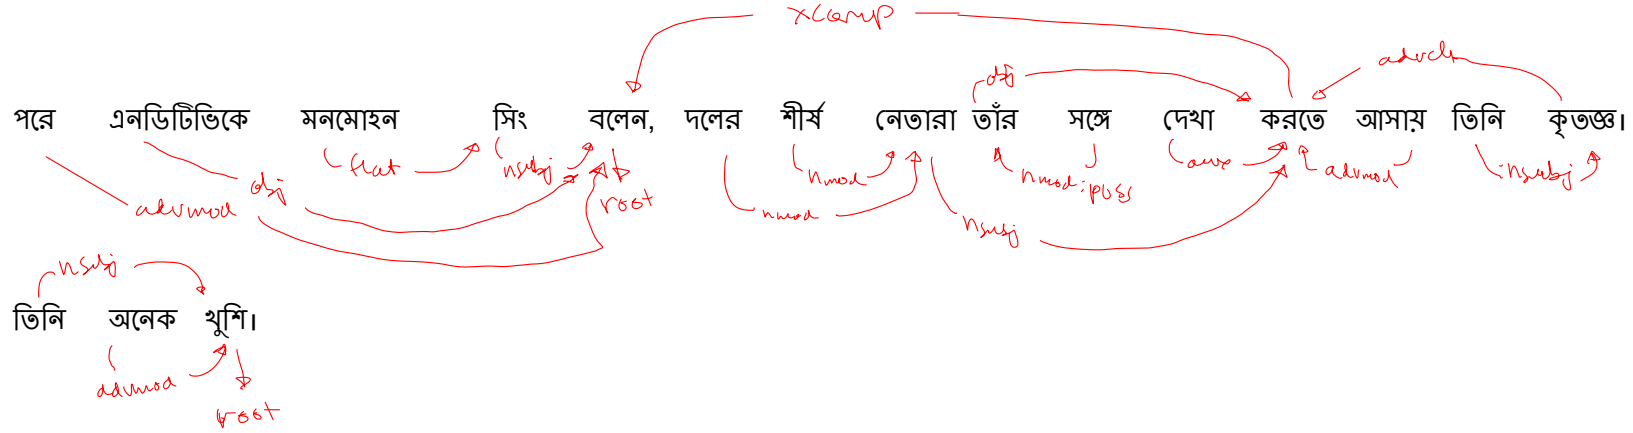 xcomp
obj advcl
পরে এনডিটিভিকে মনমোহন সিং বলেন, দলের শীর্ষ নেতারা তাঁর সঙ্গে দেখা করতে আসায় তিনি কৃতজ্ঞ।
flat nsubj nmod nmod:poss aux advmod nsubj
advmod obj root nmod nsubj
nsubj
তিনি অনেক খুশি।
advmod
root